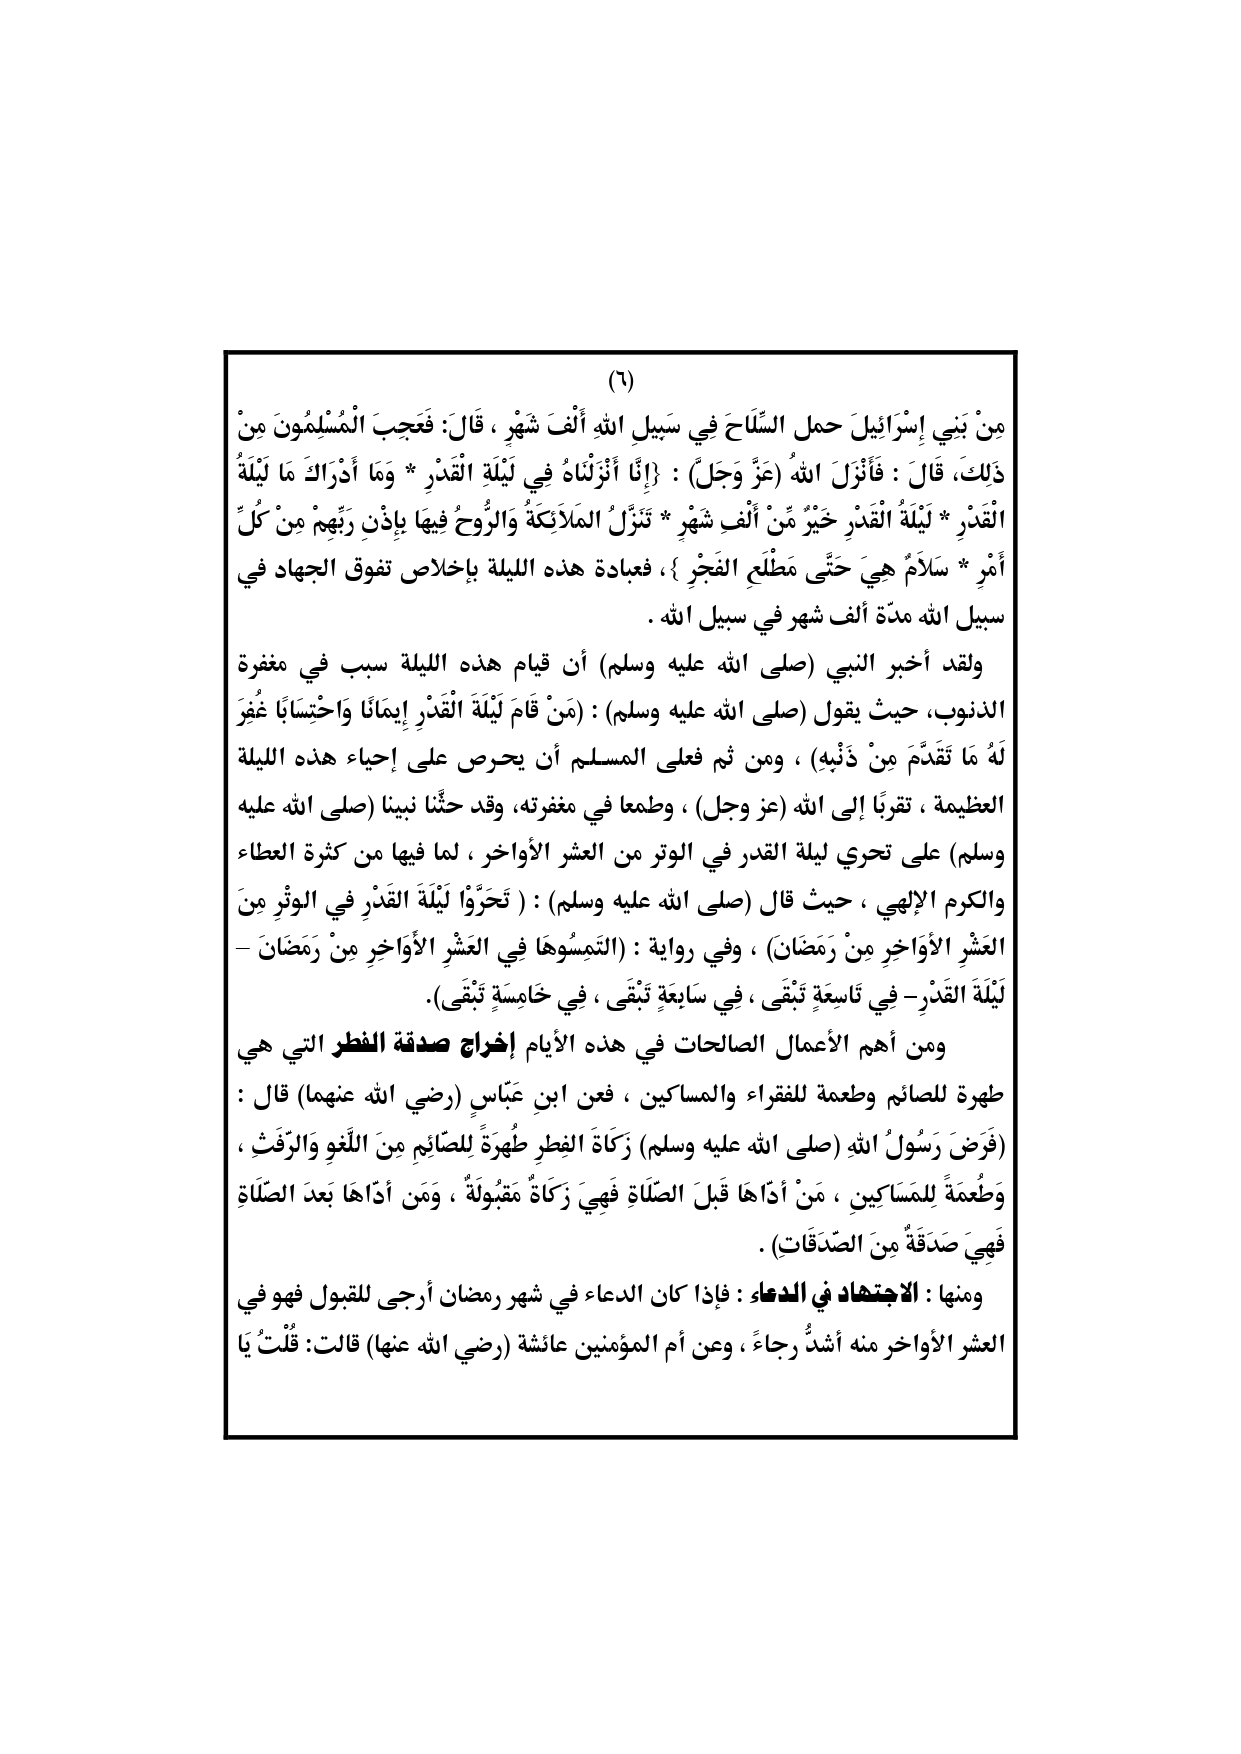 (٦)
مِنْ بَنِي إِسْرَائِيلَ حمل السِّلَاحَ فِي سَبِيلِ اللهِ أَلْفَ شَهْرٍ ، قَالَ: فَعَجِبَ الْمُسْلِمُونَ مِنْ
ذَلِكَ، قَالَ : فَأَنْزَلَ اللهُ (عَزَّ وَجَلَّ) : {إِنَّا أَنْزَلْنَاهُ فِي لَيْلَةِ الْقَدْرِ * وَمَا أَدْرَاكَ مَا لَيْلَةُ
الْقَدْرِ * لَيْلَةُ الْقَدْرِ خَيْرٌ مِّنْ أَلْفِ شَهْرٍ * تَنَزَّلُ المَلاَئِكَةُ وَالرُّوحُ فِيهَا بِإِذْنِ رَبِّهِمْ مِنْ كُلِّ
أَمْرٍ * سَلاَمٌ هِيَ حَتَّى مَطْلَعِ الفَجْرِ }، فعبادة هذه الليلة بإخلاص تفوق الجهاد في
سبيل الله مدّة ألف شهر في سبيل الله .
ولقد أخبر النبي (صلى الله عليه وسلم) أن قيام هذه الليلة سبب في مغفرة
الذنوب، حيث يقول (صلى الله عليه وسلم) : (مَنْ قَامَ لَيْلَةَ الْقَدْرِ إِيمَانًا وَاحْتِسَابًا غُفِرَ
لَهُ مَا تَقَدَّمَ مِنْ ذَنْبِهِ) ، ومن ثم فعلى المسلم أن يحرص على إحياء هذه الليلة
العظيمة ، تقربًا إلى الله (عز وجل) ، وطمعا في مغفرته، وقد حثَّنا نبينا (صلى الله عليه
وسلم) على تحري ليلة القدر في الوتر من العشر الأواخر ، لما فيها من كثرة العطاء
والكرم الإلهي ، حيث قال (صلى الله عليه وسلم) : ( تَحَرَّوْا لَيْلَةَ القَدْرِ في الوتْرِ مِنَ
العَشْرِ الأوَاخِرِ مِنْ رَمَضَانَ) ، وفي رواية : (التَمِسُوهَا فِي العَشْرِ الأَوَاخِرِ مِنْ رَمَضَانَ –
لَيْلَةَ القَدْرِ– فِي تَاسِعَةٍ تَبْقَى ، فِي سَابِعَةٍ تَبْقَى ، فِي خَامِسَةٍ تَبْقَى).
ومن أهم الأعمال الصالحات في هذه الأيام إخراج صدقة الفطر التي هي
طهرة للصائم وطعمة للفقراء والمساكين ، فعن ابنِ عَبّاسٍ (رضي الله عنهما) قال :
(فَرَضَ رَسُولُ اللهِ (صلى الله عليه وسلم) زَكَاةَ الفِطرِ طُهرَةً لِلصّائِمِ مِنَ اللَّغوِ وَالرّفَثِ ،
وَطُعمَةً لِلمَسَاكِينِ ، مَنْ أدّاهَا قَبلَ الصّلَاةِ فَهِيَ زَكَاةٌ مَقبُولَةٌ ، وَمَن أدّاهَا بَعدَ الصّلَاةِ
فَهِيَ صَدَقَةٌ مِنَ الصّدَقَاتِ) .
ومنها : الاجتهاد في الدعاء : فإذا كان الدعاء في شهر رمضان أرجى للقبول فهو في
العشر الأواخر منه أشدُّ رجاءً ، وعن أم المؤمنين عائشة (رضي الله عنها) قالت: قُلْتُ يَا